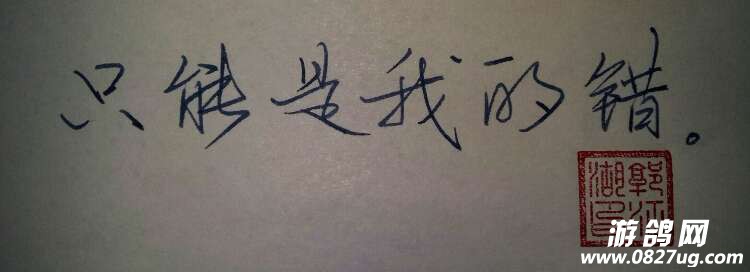 只能是我的错。
郭江湖印
游鸽网
www.0827ug.com